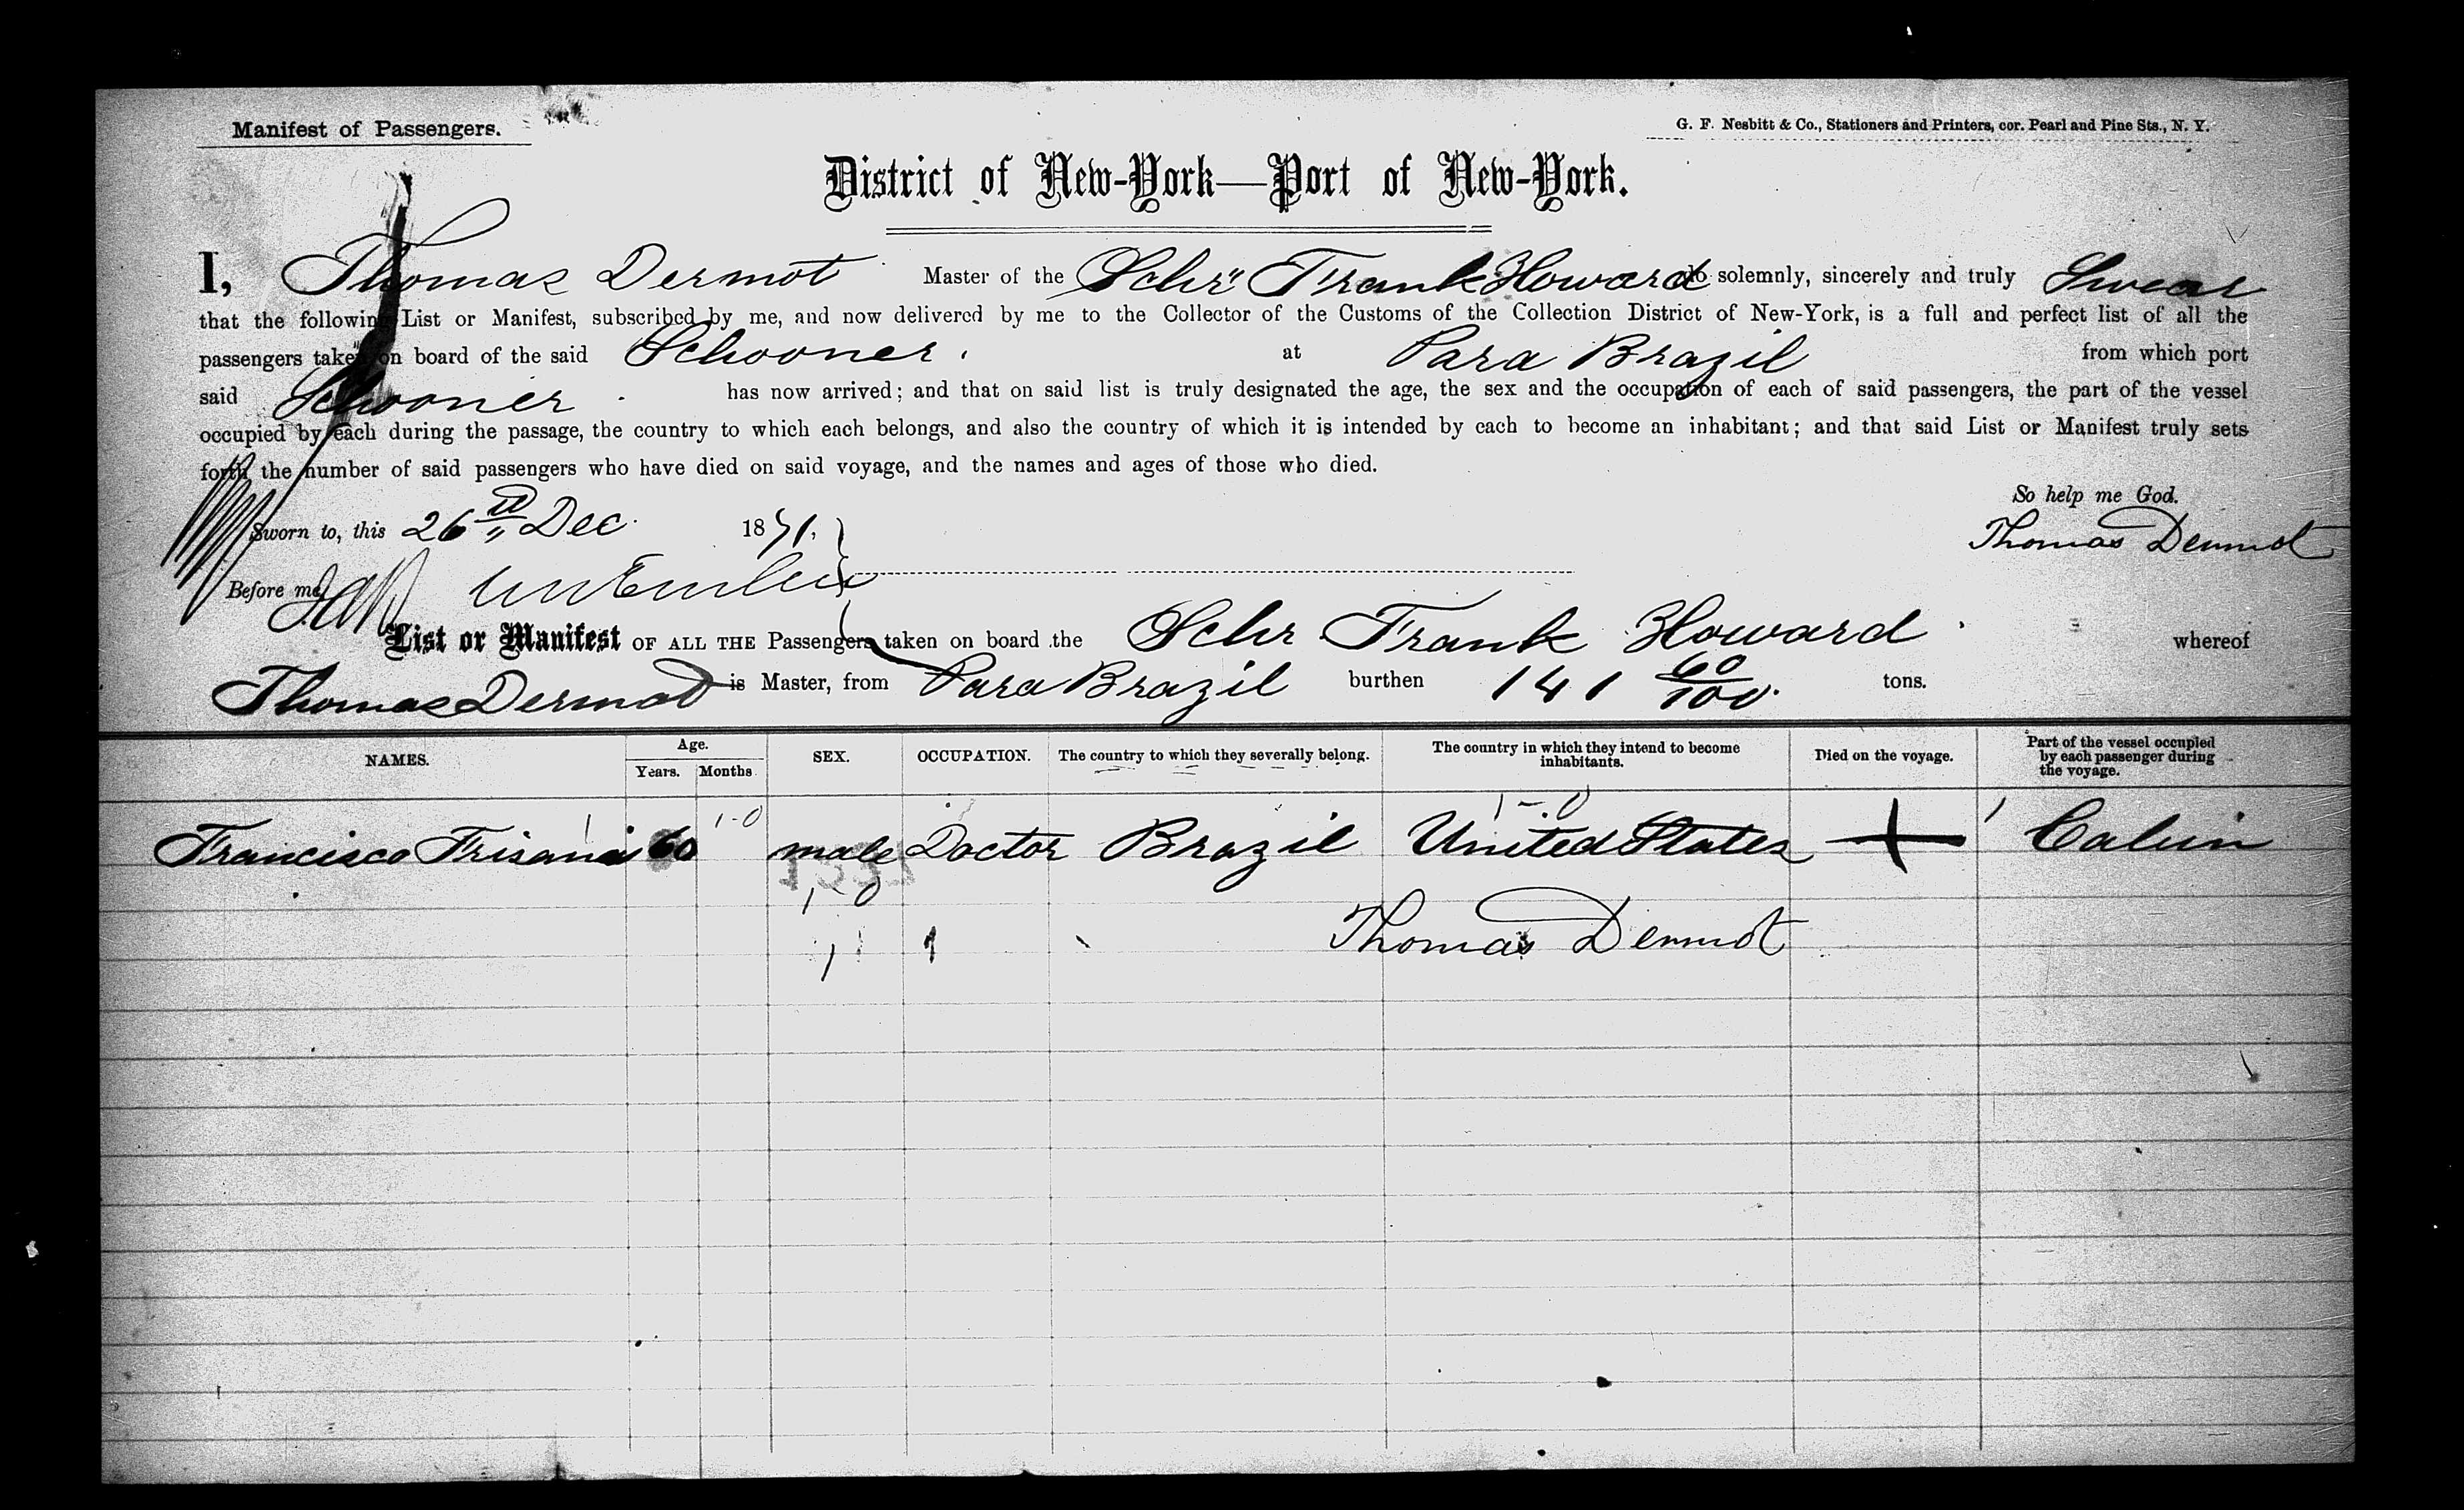 Manifest of Passengers.
G. F. Nesbitt & Co., Stationers and Printers, cor. Pearl and Pine Sts., N. Y.
District of New-York—Port of New-York.
I, Thomas Dermot Master of the Schr Frank Howard do solemnly, sincerely and truly Swear
that the following List or Manifest, subscribed by me, and now delivered by me to the Collector of the Customs of the Collection District of New-York, is a full and perfect list of all the
passengers taken on board of the said Schooner at Para Brazil from which port
said Schooner has now arrived; and that on said list is truly designated the age, the sex and the occupation of each of said passengers, the part of the vessel
occupied by each during the passage, the country to which each belongs, and also the country of which it is intended by each to become an inhabitant; and that said List or Manifest truly sets
forth the number of said passengers who have died on said voyage, and the names and ages of those who died.
So help me God.
Sworn to, this 26 Dec 1871. Thomas Dermot
Before me
List or Manifest OF ALL THE Passengers taken on board the Schr Frank Howard whereof
Thomas Dermot is Master, from Para Brazil burthen 141 60/100 tons.
NAMES. Age. Years. Months SEX. OCCUPATION. The country to which they severally belong. The country in which they intend to become inhabitants. Died on the voyage. Part of the vessel occupied by each passenger during the voyage.
1 1-0 1-0 1
Francisco 60 male Doctor Brazil United States Cabin
1-0
1 1 Thomas Dermot